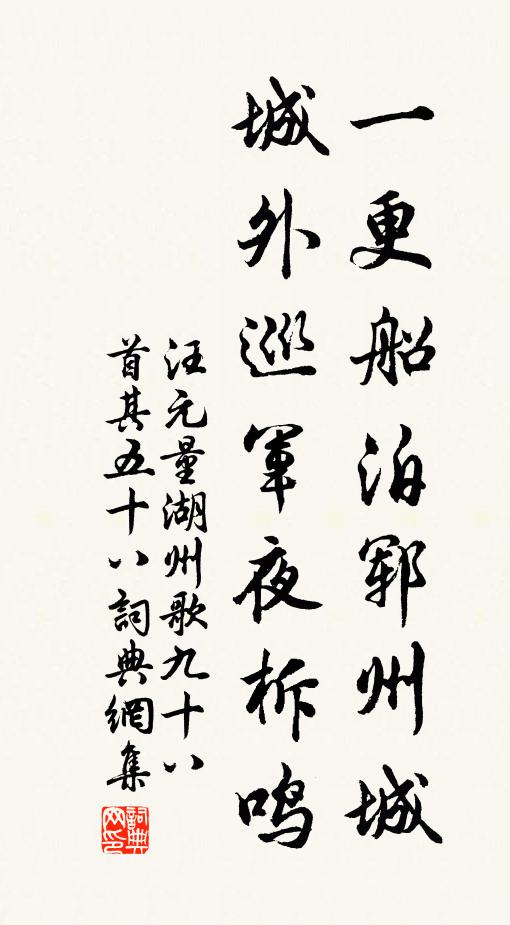 一更船泊鄆州城
城外巡軍夜柝鳴
汪元量湖州歌九十八
首其五十八詞典網集
詞典
网印